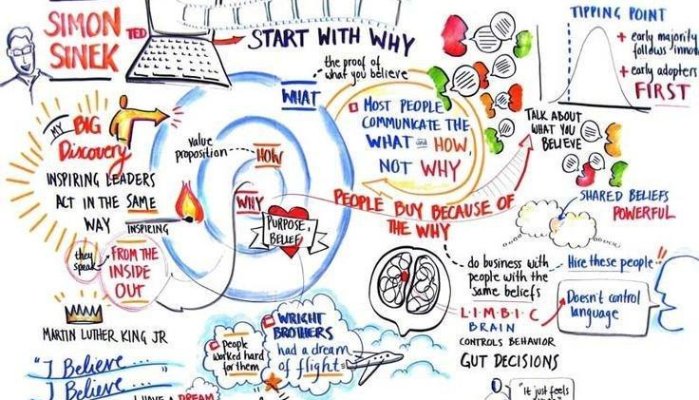 SIMON
SINEK
TED
START WITH WHY
the proof of
what you believe
WHAT
value
proposition
HOW
WHY
PURPOSE,
BELIEF
MY
BIG
Discovery
INSPIRING LEADERS
ACT IN THE SAME
WAY
INSPIRING
they
speak
FROM THE
INSIDE
OUT
MOST PEOPLE
COMMUNICATE THE
WHAT and HOW,
NOT WHY
PEOPLE BUY BECAUSE OF
THE WHY
TIPPING POINT
+ early majority
follows
+ early adopters
FIRST
TALK ABOUT
WHAT YOU
BELIEVE
SHARED BELIEFS
POWERFUL
do business with
people with the
same beliefs
Hire these people
L·I·M·B·I·C
BRAIN
CONTROLS BEHAVIOR
GUT DECISIONS
Doesn't control
language
"It just feels
MARTIN LUTHER KING JR
"I Believe...
I Believe...
I HAVE A DREAM
people
worked hard
for them
WRIGHT
BROTHERS
had a dream
of flight